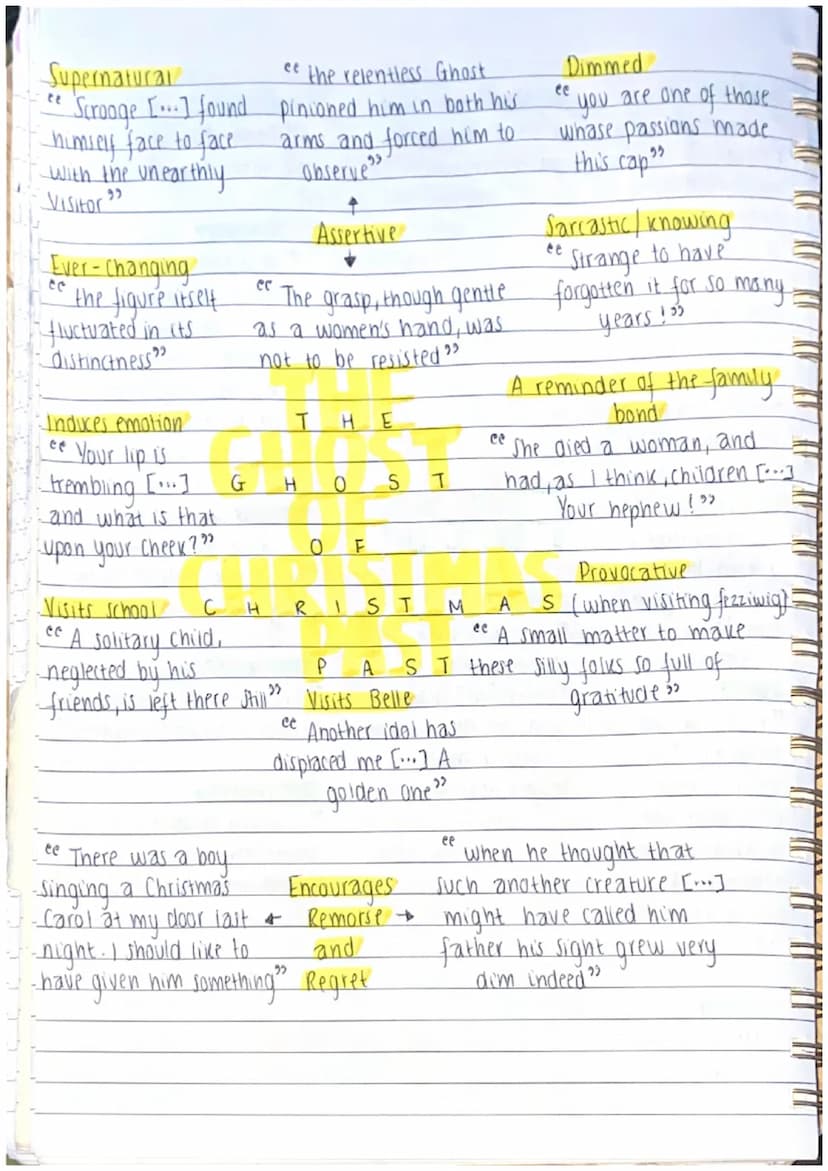 Supernatural
“ Scrooge [...] found
himself face to face
with the unearthly
Visitor ”
“ the relentless Ghost
pinioned him in both his
arms and forced him to
observe ”
Assertive
“ The grasp, though gentle
as a women's hand, was
not to be resisted ”
Dimmed
“ you are one of those
whose passions made
this cap ”
Ever-changing
“ the figure itself
fluctuated in its
distinctness ”
Sarcastic/knowing
“ Strange to have
forgotten it for so many
years ! ”
Induces emotion
“ Your lip is
trembling [...]
and what is that
upon your cheek? ”
THE
GHOST
OF
CHRISTMAS
PAST
T H E
G H O S T
O F
C H R I S T M A S
P A S T
A reminder of the family
bond
“ She died a woman, and
had, as I think, children [...]
Your nephew ! ”
Visits school
“ A solitary child,
neglected by his
friends, is left there still ”
Provocative
(when visiting fezziwig)
“ A small matter to make
these silly folks so full of
gratitude ”
Visits Belle
“ Another idol has
displaced me [...] A
golden one ”
“ There was a boy
singing a Christmas
Carol at my door last
night. I should like to
have given him something ”
Encourages
← Remorse →
and
Regret
“ when he thought that
such another creature [...]
might have called him
father his sight grew very
dim indeed ”